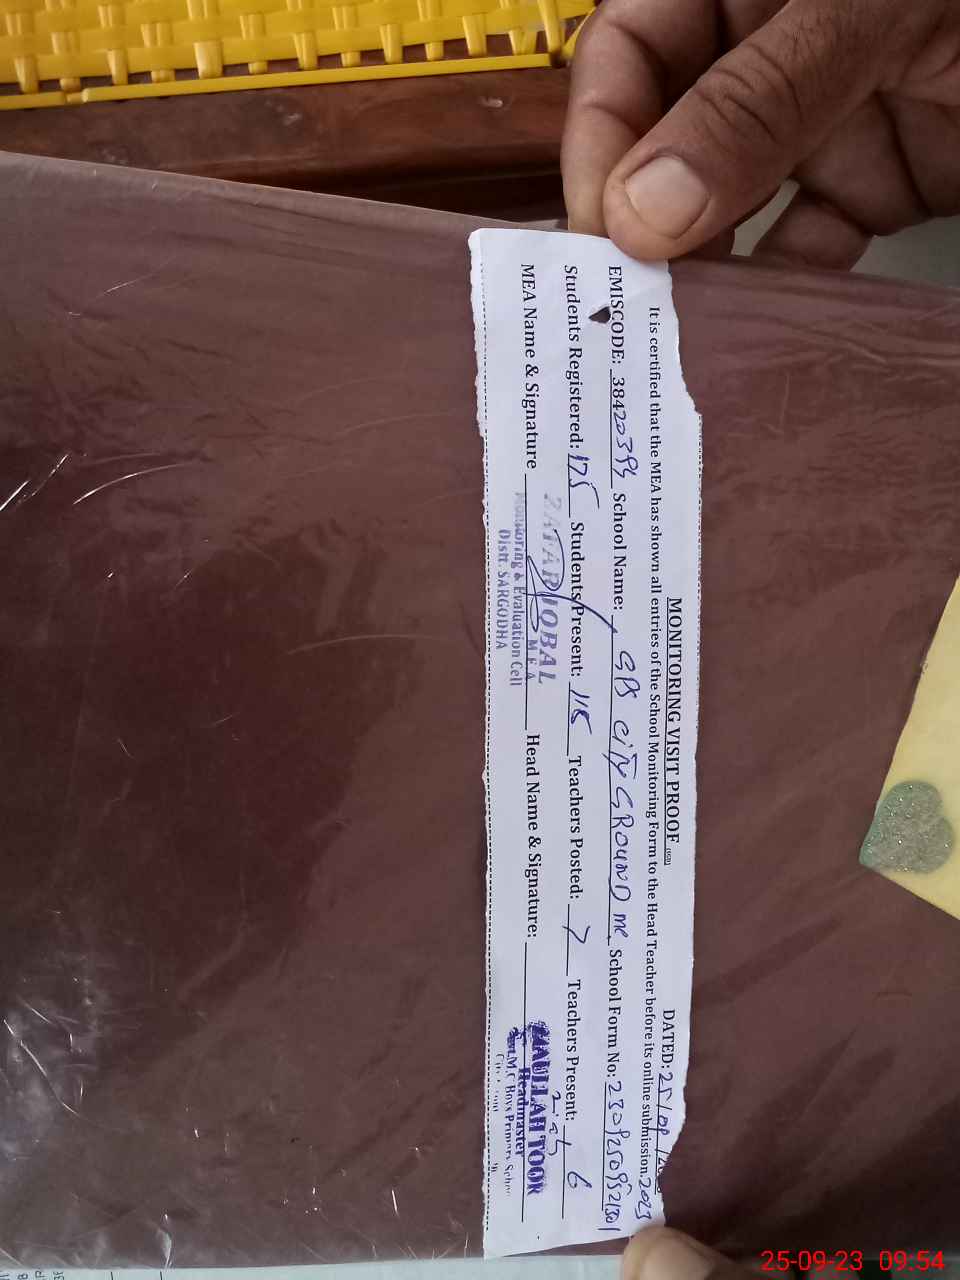 MONITORING VISIT PROOF DATED: 25/09/2023
It is certified that the MEA has shown all entries of the School Monitoring Form to the Head Teacher before its online submission.
EMISCODE: 38420394 School Name: GPS CITY GROUND MC School Form No:
Students Registered: 175 Students Present: 115 Teachers Posted: 7 Teachers Present: 6
MEA Name & Signature Head Name & Signature:
ZAFAR IQBAL
M.E.A
Monitoring & Evaluation Cell
Distt. SARGODHA
ULLAH TOOR
Headmaster
M.C Boys Primary School
25-09-23 09:54